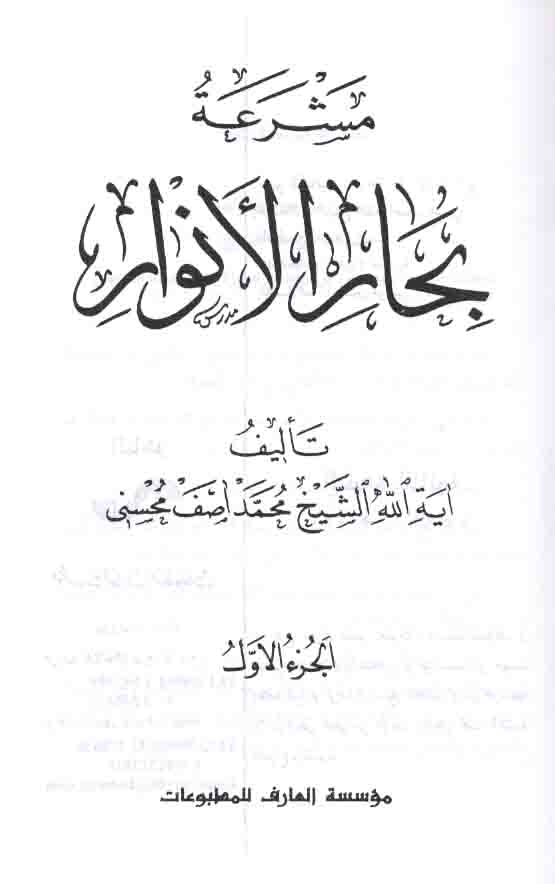 مَشْرَعَةُ
بِحَارِ الأَنْوَارِ
تَأليفُ
آيَةِ اللهِ الشَّيْخ مُحَمَّد آصِفْ مُحْسِنِي
الجُزءُ الأوّلُ
مؤسسة العارف للمطبوعات